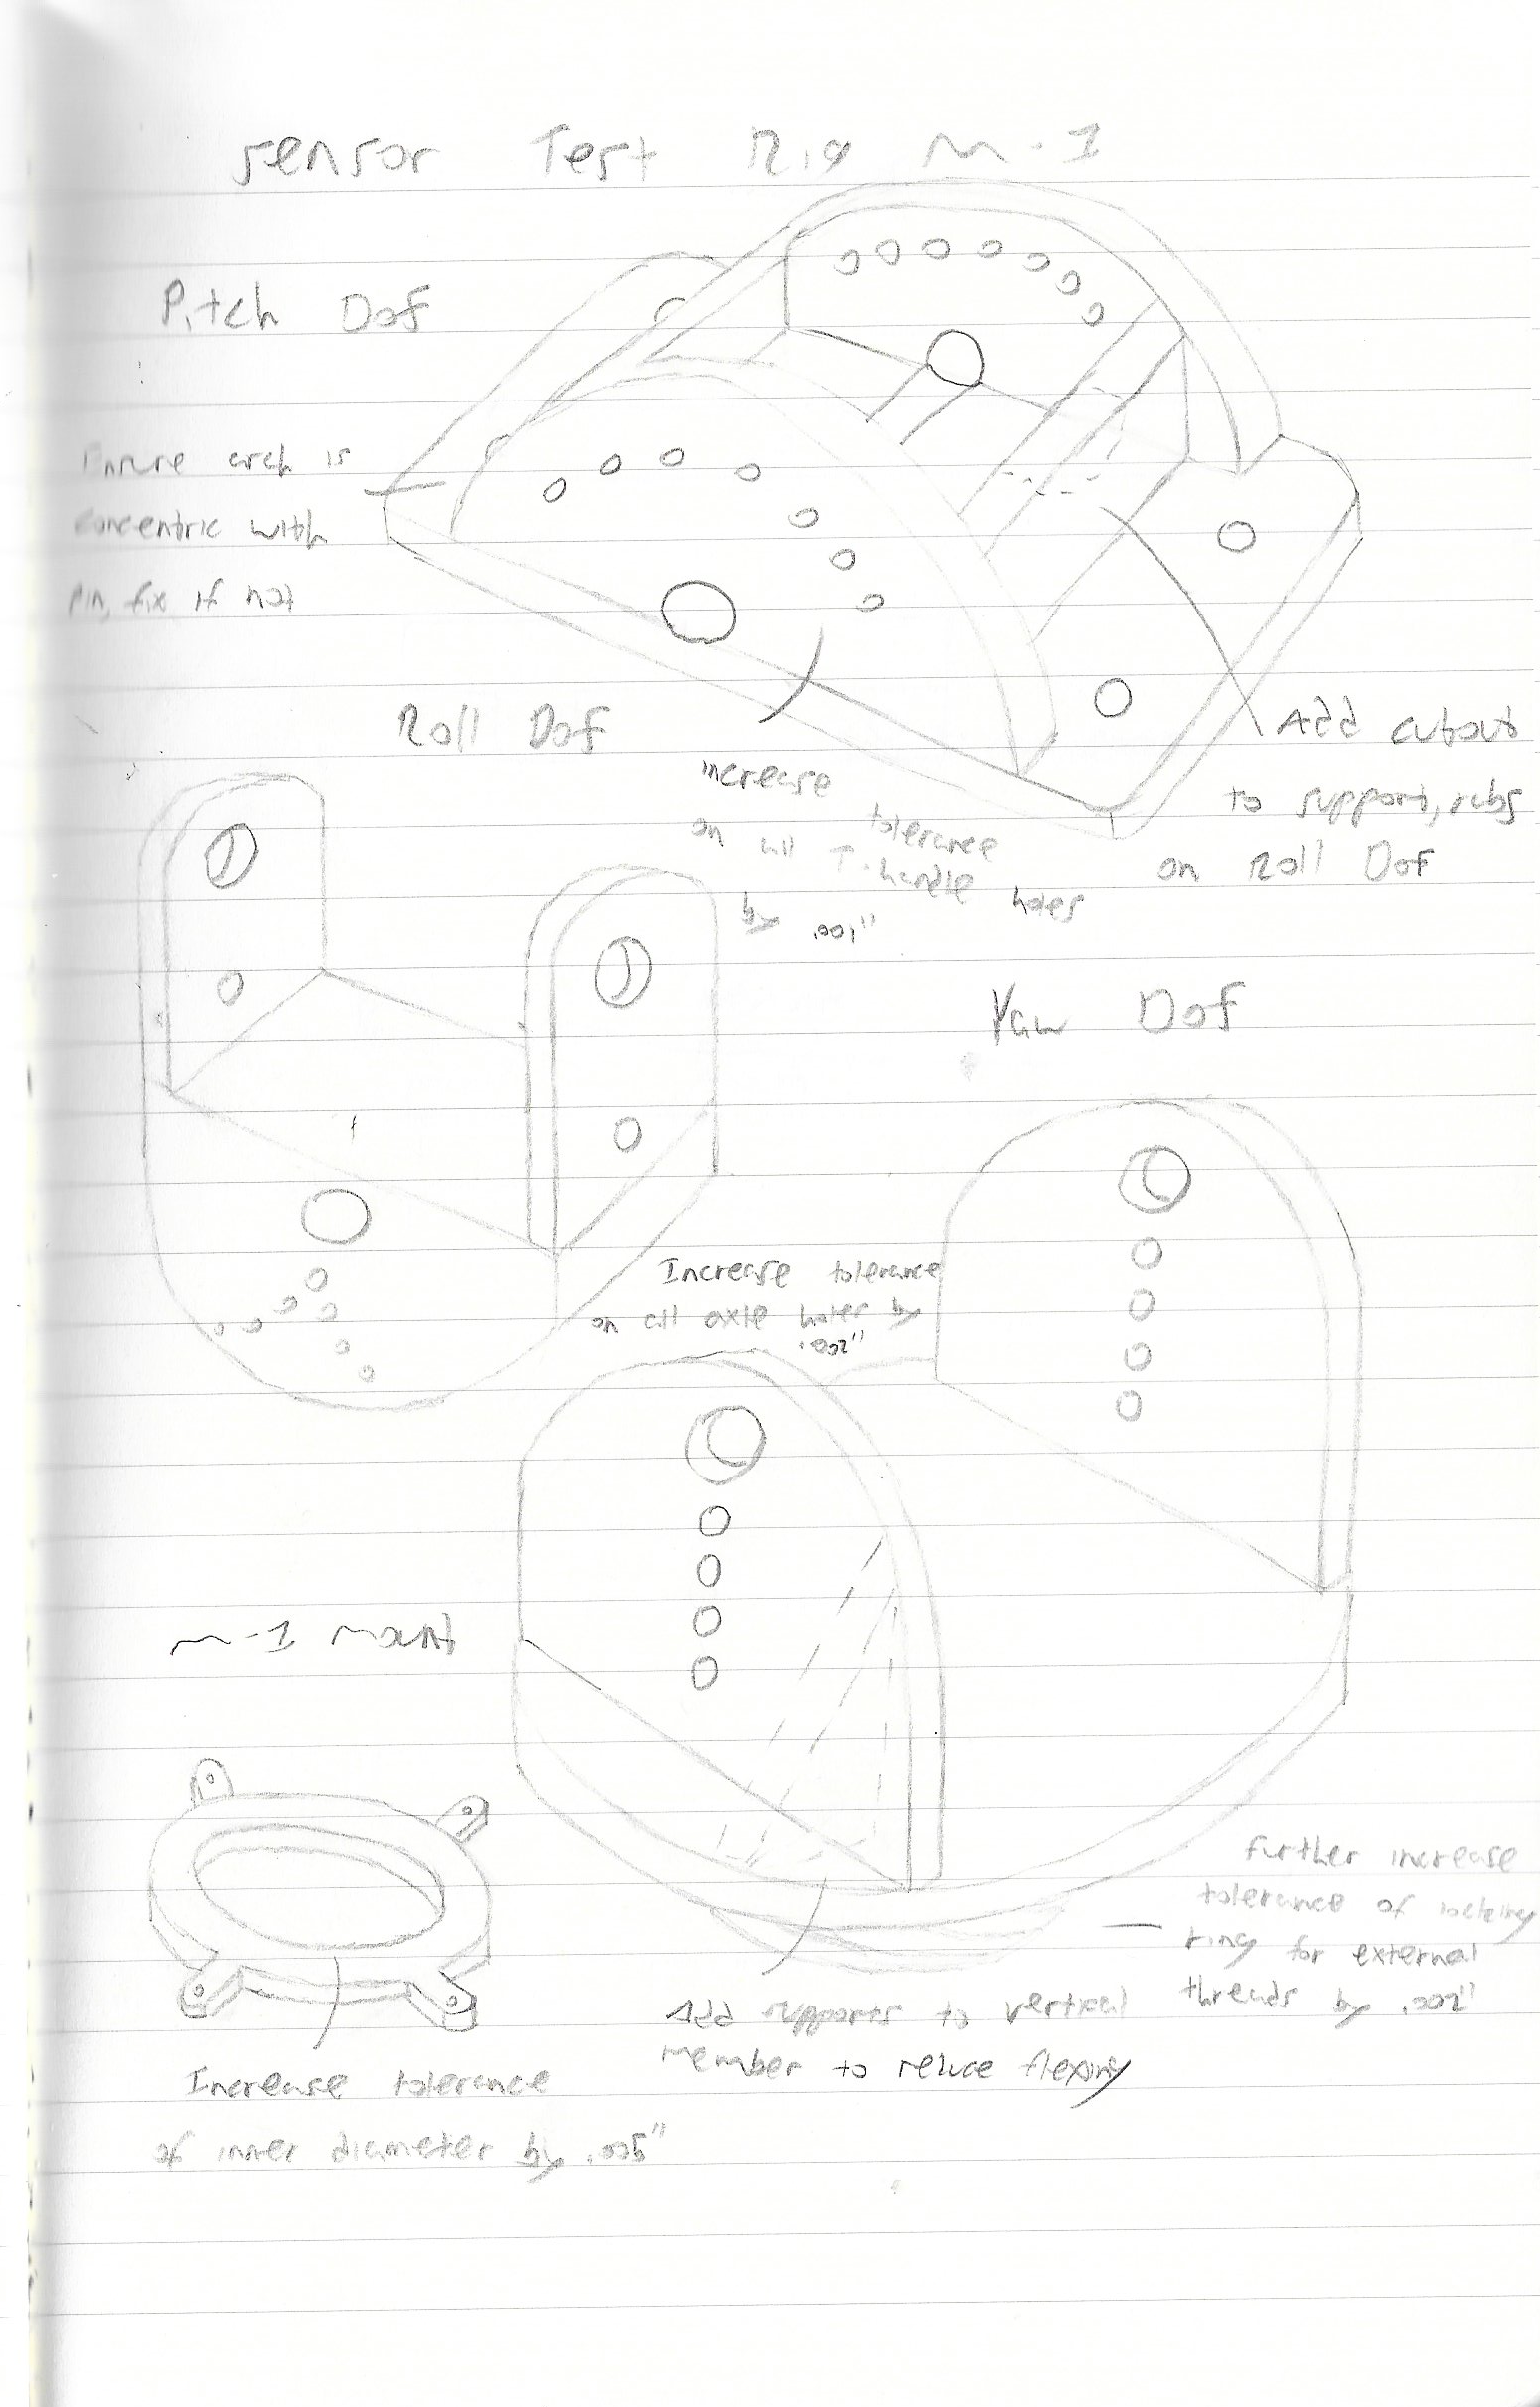 Sensor Test Rig M-1
Pitch Dof
Ensure arch is
concentric with
pin, fix if not
Roll Dof
Add cutout
to support, rubs
on Roll Dof
increase
tolerance
on all T-handle
holes
by .001"
Yaw Dof
Increase tolerance
on all axle holes by
.002"
M-1 Mount
Further increase
tolerance of locking
ring for external
threads by .002"
Add supports to vertical
member to reduce flexing
Increase tolerance
of inner diameter by .005"